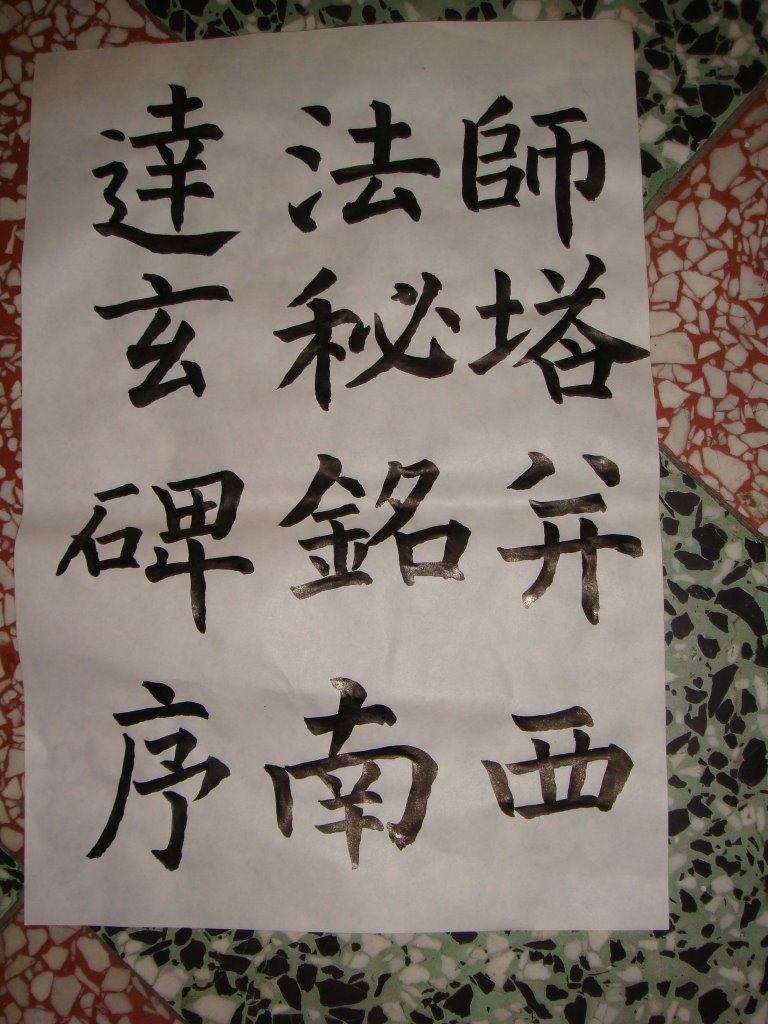 達法師
玄秘塔
碑銘并
序南西